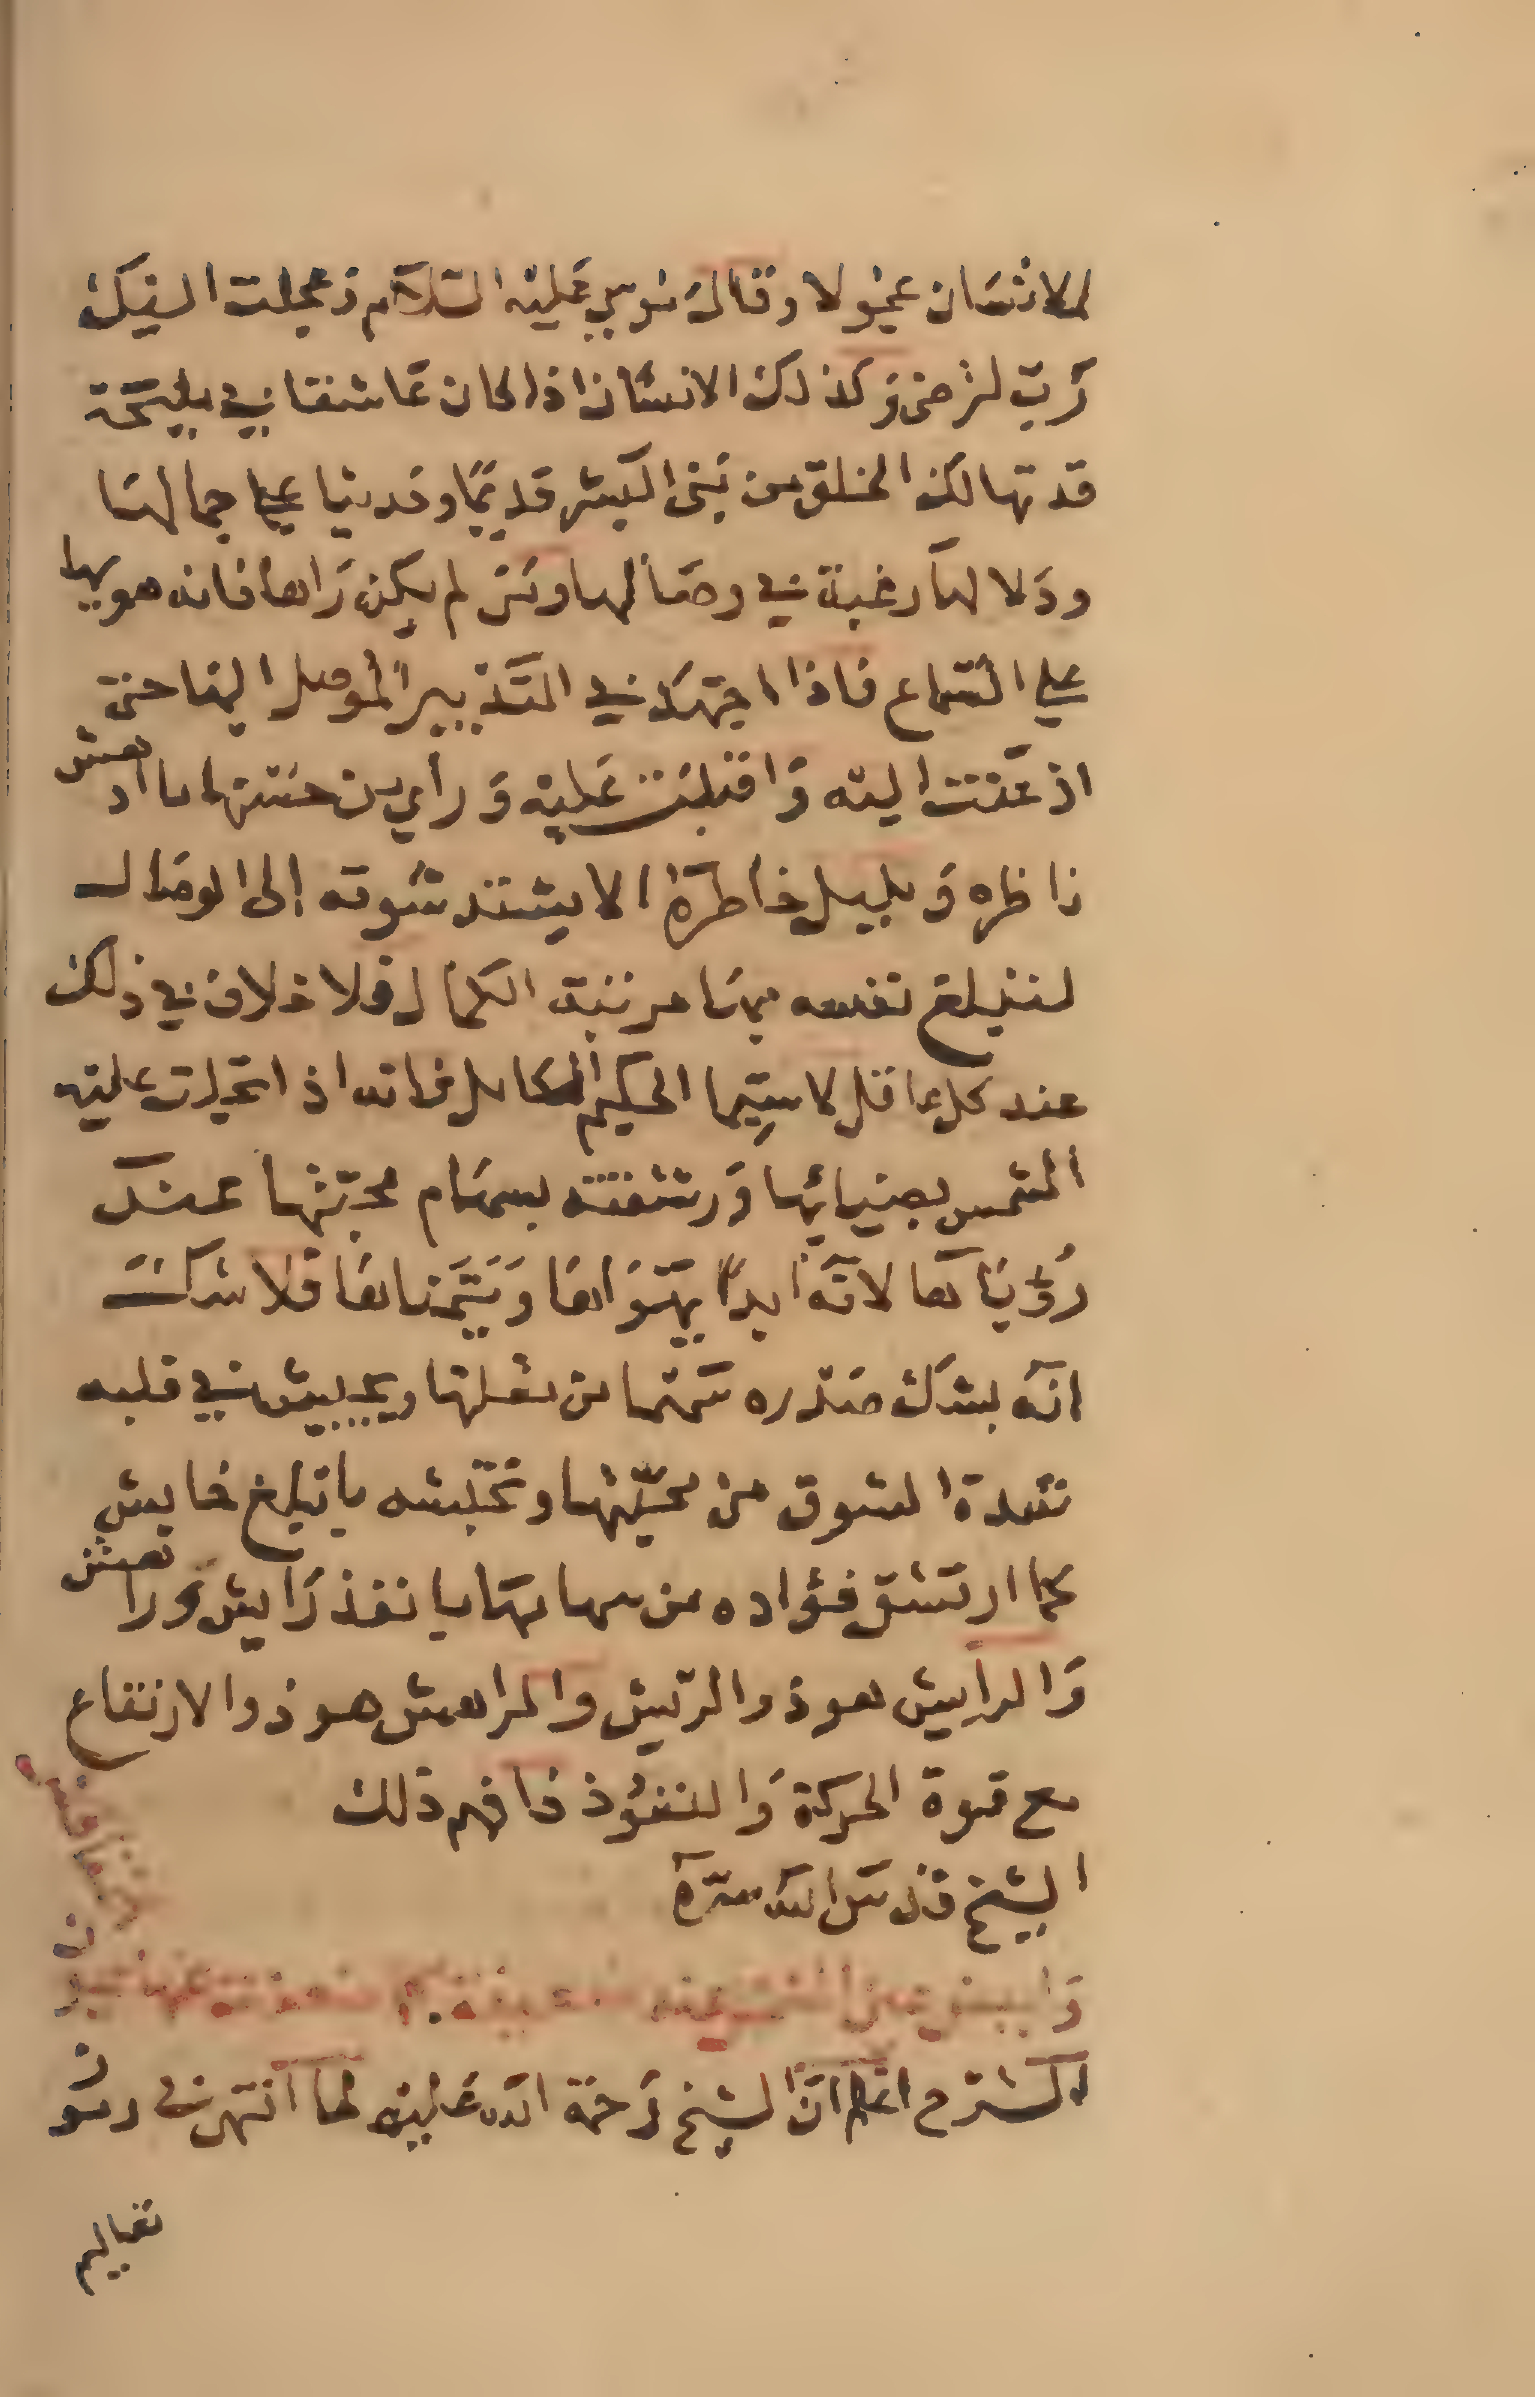 الانسان عجولا وقال موسي عليه السلام وعجلت اليك
رب لترضى وكذلك الانسان اذا كان عاشقا في مليحة
قد تهالك الخلق من بنى البشر قديما وحديثا علي جمالها
ودلالها رغبة في وصالها ومن لم يكن راها فانه هويها
علي السماع فاذا اجتهد في التدبير الموصل اليها حتى
اذعنت اليه واقبلت عليه وراي من حسنها ما ادهش
ناظره وبلبل خاطره الا يشتد شوقه إلى الوصال
لتبلغ نفسه بها مرتبة الكمال فلا خلاف في ذلك
عند كل عاقل لا سيما الحكيم الكامل فانه اذا تجلت عليه
الشمس بضيائها ورشقته بسهام محبتها عند
رؤياها لانه ابدا يهواها ويتمناها فلا شك
انه يشك صدره سهما من مقلتها ويجيش في قلبه
شدة الشوق من محبتها وتخبشه ما تبلغ خابش
كما ارتشق فؤاده من سهامها ما نفذ رايش وراهش
والرايش هو ذو الريش والراهش هو ذو الارتفاع
مع قوة الحركة والنفوذ فافهم ذلك
الشيخ قدس الله سره
الشرح اعلم ان الشيخ رحمة الله عليه لما انتهى في رسو
تعاليم